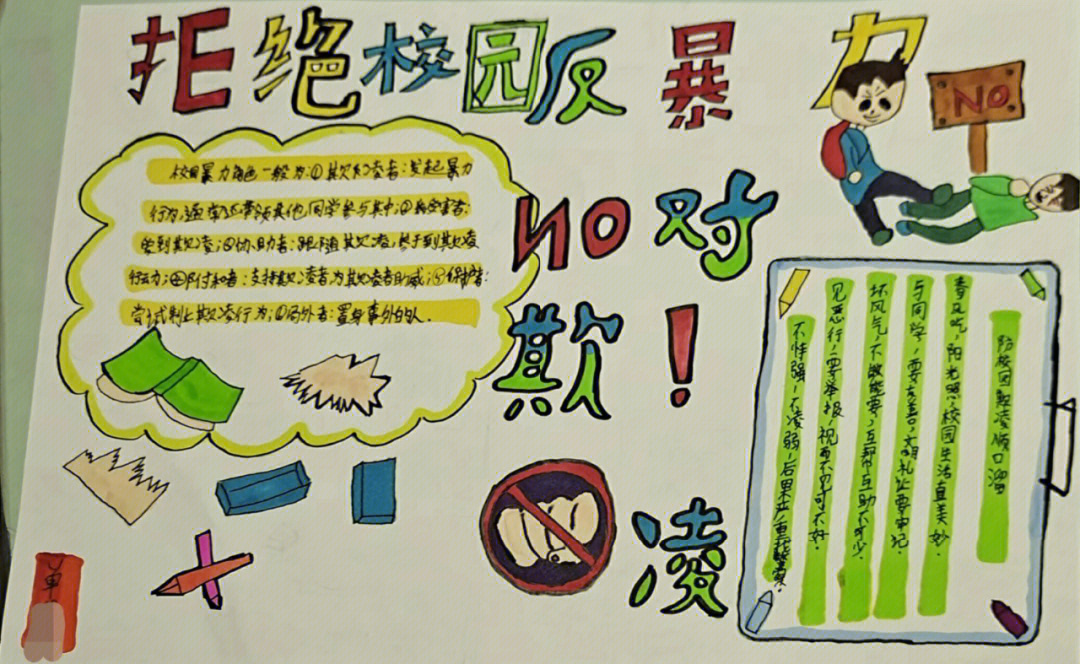 拒绝校园反暴力
NO
校园暴力角色一般为:①欺凌者:发起暴力
行为,通常还带领其他同学参与其中;②被受害者:
受到欺凌;③协助者:跟随欺凌者,参于到欺凌
行动;④附和者:支持欺凌者为欺凌者助威;⑤保护者:
尝试制止欺凌行为;⑥局外者:置身事外的人.
NO对
欺!
凌
防校园欺凌顺口溜
春风吃,阳光照,校园生活真美妙.
与同学,要友善,文明礼让要牢记.
坏风气,不能要,互帮互助不可少.
见恶行,要举报,视而不见可不好.
不恃强,不凌弱,后果
单